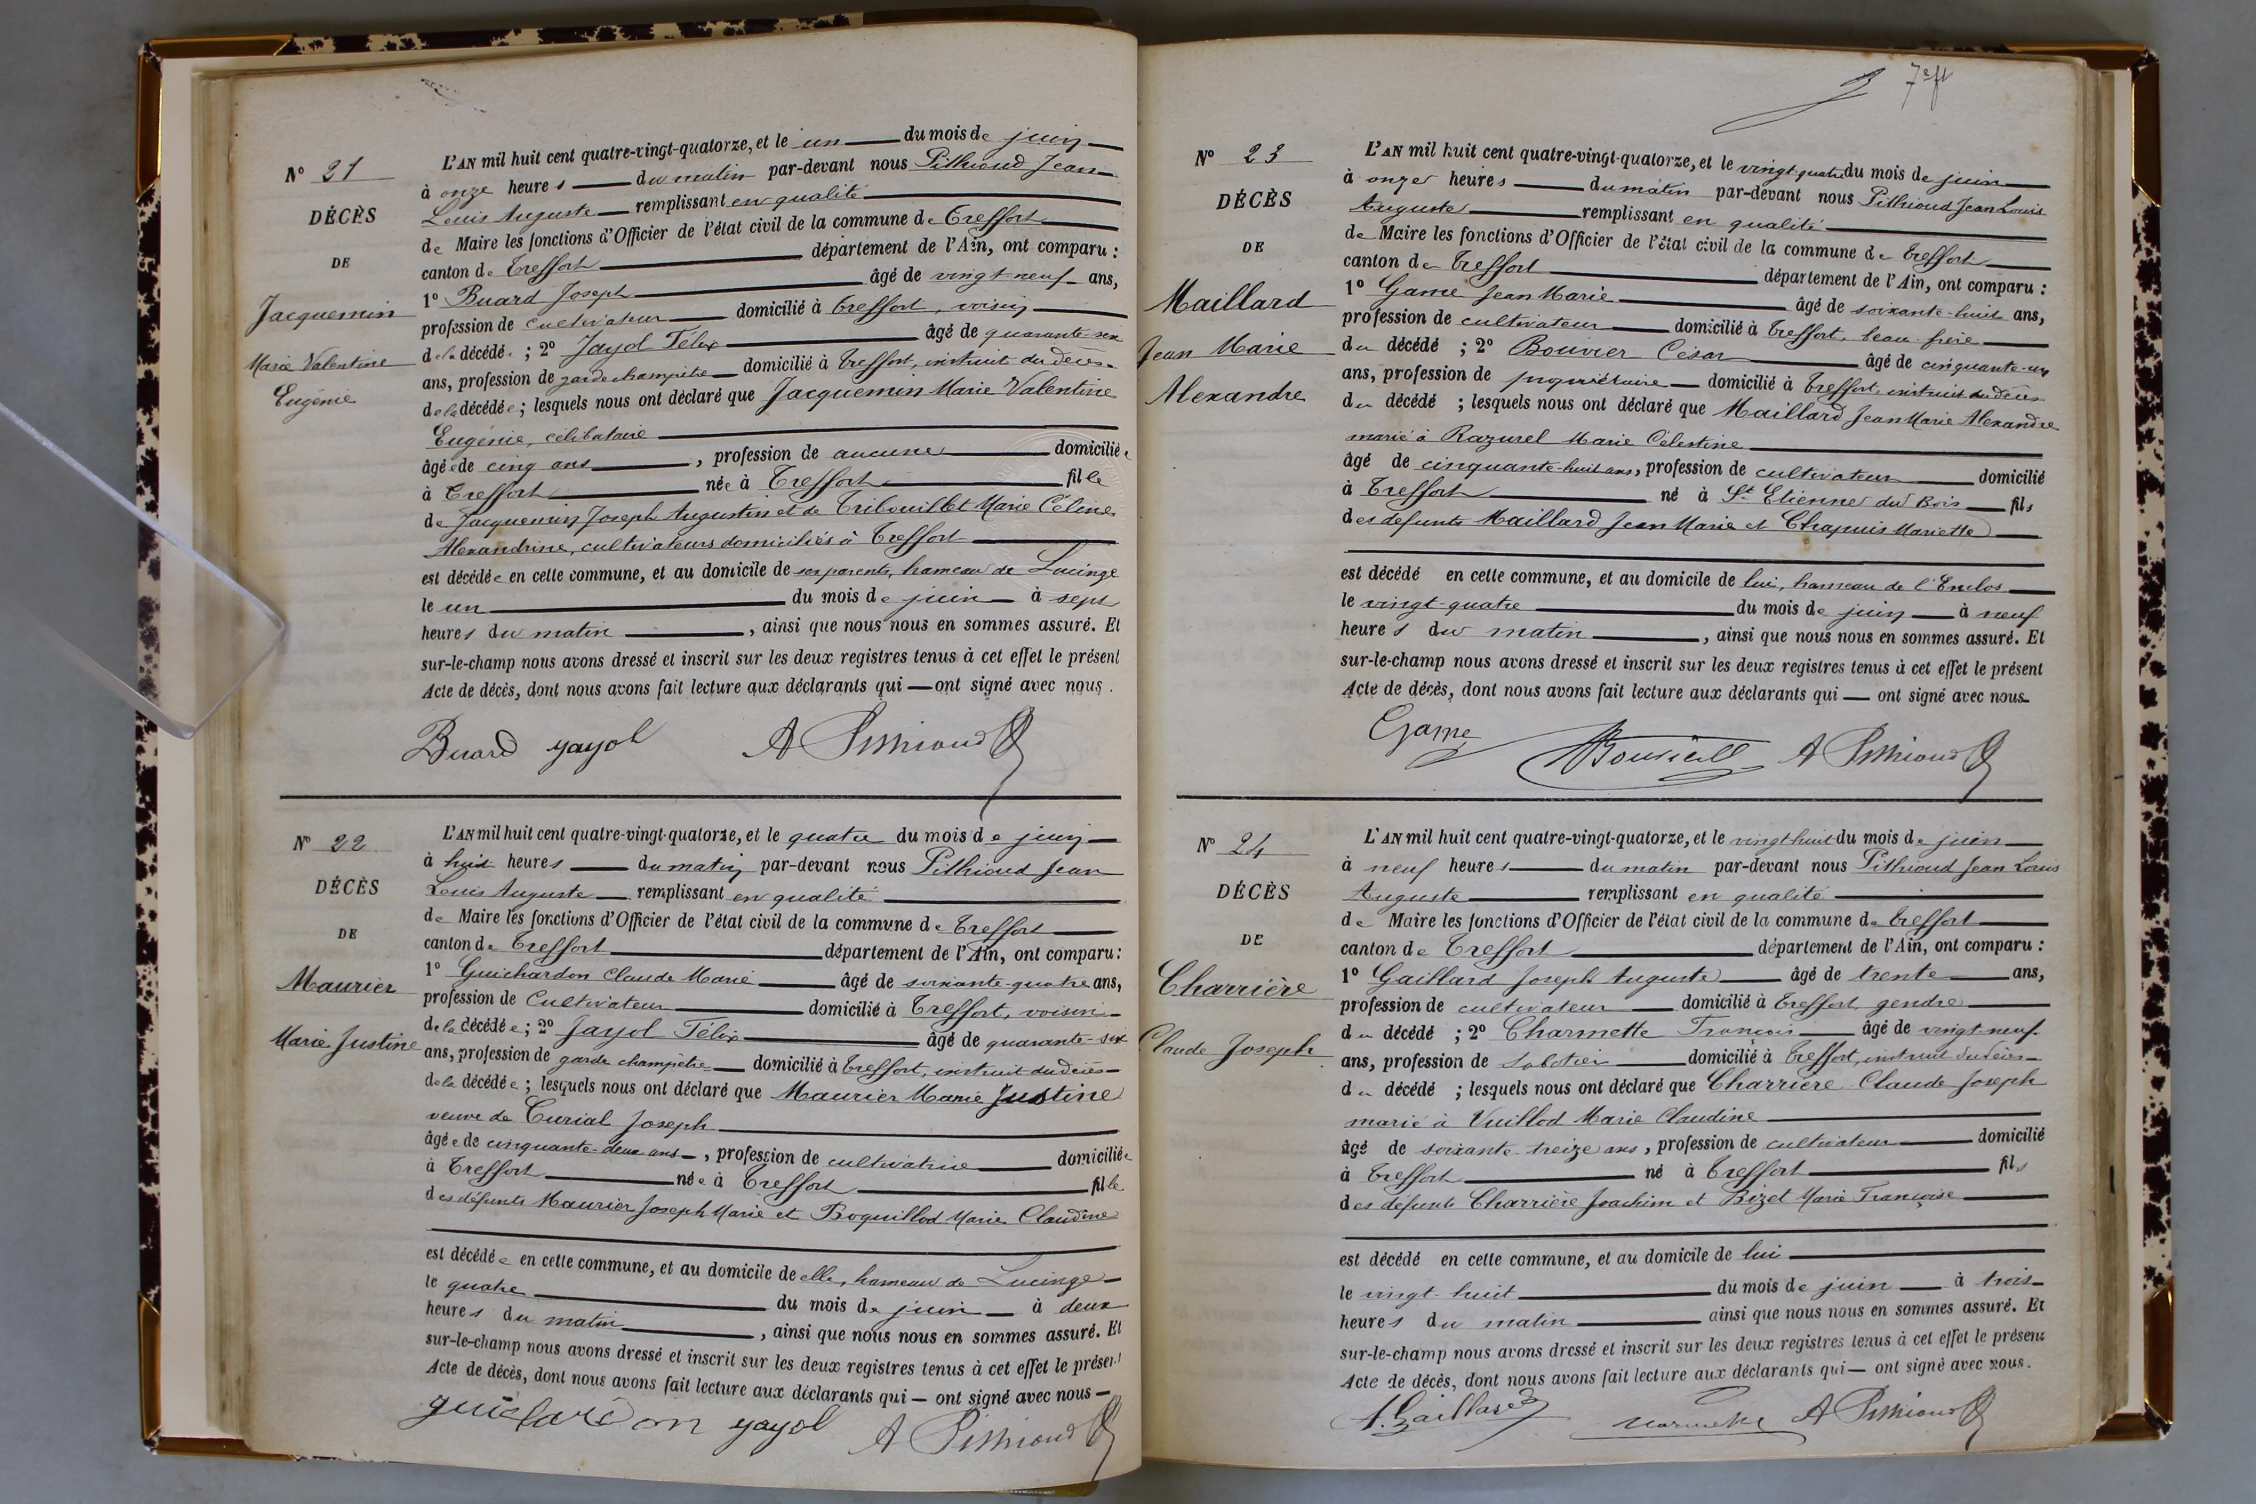 N° 21
DÉCÈS
DE
Jacquemin
Marie Valentine
Eugénie
L'AN mil huit cent quatre-vingt-quatorze, et le un du mois de juin
à onze heures du matin par-devant nous Pithioud Jean
Louis Auguste remplissant en qualité
de Maire les fonctions d'Officier de l'état civil de la commune de Treffort
canton de Treffort département de l'Ain, ont comparu :
1° Buard Joseph âgé de vingt-neuf ans,
profession de cultivateur domicilié à Treffort, voisin
de la décédée ; 2° Jayol Félix âgé de quarante-six
ans, profession de garde champêtre domicilié à Treffort, instruit du décès
de la décédée ; lesquels nous ont déclaré que Jacquemin Marie Valentine
Eugénie, célibataire
âgée de cinq ans, profession de aucune domiciliée
à Treffort née à Treffort fille
de Jacquemin Joseph Augustin et de Tribouillet Marie Céline
Alexandrine, cultivateurs domiciliés à Treffort
est décédée en cette commune, et au domicile de ses parents, hameau de Lucinge
le un du mois de juin à sept
heures du matin, ainsi que nous nous en sommes assuré. Et
sur-le-champ nous avons dressé et inscrit sur les deux registres tenus à cet effet le présent
Acte de décès, dont nous avons fait lecture aux déclarants qui — ont signé avec nous.
Buard yayol A Pithioud
N° 22
DÉCÈS
DE
Maurier
Marie Justine
L'AN mil huit cent quatre-vingt-quatorze, et le quatre du mois de juin
à huit heures du matin par-devant nous Pithioud Jean
Louis Auguste remplissant en qualité
de Maire les fonctions d'Officier de l'état civil de la commune de Treffort
canton de Treffort département de l'Ain, ont comparu :
1° Guichardon Claude Marie âgé de soixante-quatre ans,
profession de Cultivateur domicilié à Treffort, voisin
de la décédée ; 2° Jayol Félix âgé de quarante-six
ans, profession de garde champêtre domicilié à Treffort, instruit du décès
de la décédée ; lesquels nous ont déclaré que Maurier Marie Justine
veuve de Curial Joseph
âgée de cinquante-deux ans, profession de cultivatrice domiciliée
à Treffort née à Treffort fille
des défunts Maurier Joseph Marie et Boquillod Marie Claudine
est décédée en cette commune, et au domicile de elle, hameau de Lucinge
le quatre du mois de juin à deux
heures du matin, ainsi que nous nous en sommes assuré. Et
sur-le-champ nous avons dressé et inscrit sur les deux registres tenus à cet effet le présent
Acte de décès, dont nous avons fait lecture aux déclarants qui — ont signé avec nous
guichardon yayol A Pithioud
7e ft
N° 23
DÉCÈS
DE
Maillard
Jean Marie
Alexandre
L'AN mil huit cent quatre-vingt-quatorze, et le vingt-quatre du mois de juin
à onze heures du matin par-devant nous Pithioud Jean Louis
Auguste remplissant en qualité
de Maire les fonctions d'Officier de l'état civil de la commune de Treffort
canton de Treffort département de l'Ain, ont comparu :
1° Game Jean Marie âgé de soixante-huit ans,
profession de cultivateur domicilié à Treffort, beau-frère
du décédé ; 2° Bouvier César âgé de cinquante-un
ans, profession de propriétaire domicilié à Treffort, instruit du décès
du décédé ; lesquels nous ont déclaré que Maillard Jean Marie Alexandre
marié à Razurel Marie Célestine
âgé de cinquante-huit ans, profession de cultivateur domicilié
à Treffort né à St Etienne du Bois fils
des défunts Maillard Jean Marie et Chapuis Mariette
est décédé en cette commune, et au domicile de lui, hameau de l'Enclos
le vingt-quatre du mois de juin à neuf
heures du matin, ainsi que nous nous en sommes assuré. Et
sur-le-champ nous avons dressé et inscrit sur les deux registres tenus à cet effet le présent
Acte de décès, dont nous avons fait lecture aux déclarants qui — ont signé avec nous
Game Bouvier A Pithioud
N° 24
DÉCÈS
DE
Charrière
Claude Joseph
L'AN mil huit cent quatre-vingt-quatorze, et le vingt-huit du mois de juin
à neuf heures du matin par-devant nous Pithioud Jean Louis
Auguste remplissant en qualité
de Maire les fonctions d'Officier de l'état civil de la commune de Treffort
canton de Treffort département de l'Ain, ont comparu :
1° Gaillard Joseph Auguste âgé de trente ans,
profession de cultivateur domicilié à Treffort, gendre
du décédé ; 2° Charmette François âgé de vingt-neuf
ans, profession de sabotier domicilié à Treffort, instruit du décès
du décédé ; lesquels nous ont déclaré que Charrière Claude Joseph
marié à Vuillod Marie Claudine
âgé de soixante-treize ans, profession de cultivateur domicilié
à Treffort né à Treffort fils
des défunts Charrière Joachim et Bizet Marie Françoise
est décédé en cette commune, et au domicile de lui
le vingt-huit du mois de juin à trois
heures du matin ainsi que nous nous en sommes assuré. Et
sur-le-champ nous avons dressé et inscrit sur les deux registres tenus à cet effet le présent
Acte de décès, dont nous avons fait lecture aux déclarants qui — ont signé avec nous.
A. Gaillard A Pithioud